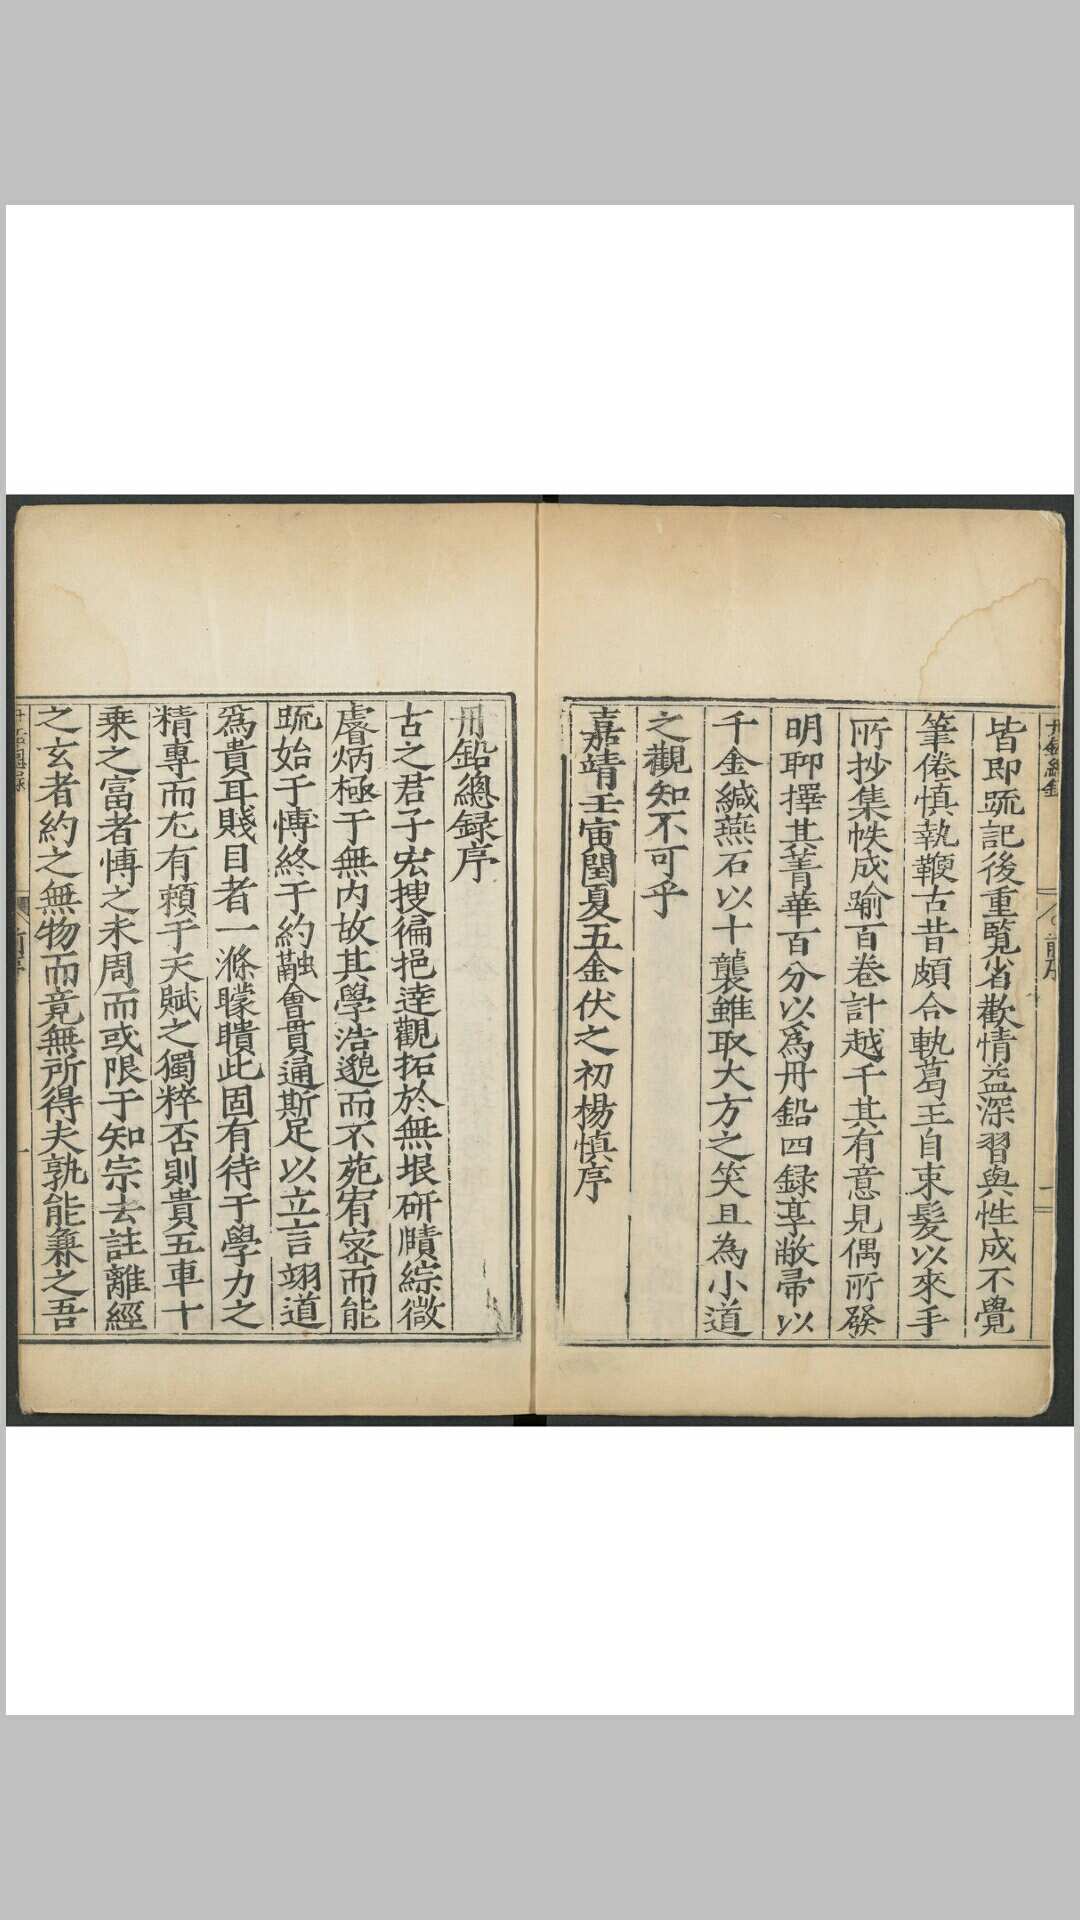 皆即䟽記後重覽省歡情益深習與性成不覺
筆倦慎執鞭古昔頗合軌葛王自束髮以來手
所抄集帙成踰百卷計越千其有意見偶所發
明聊擇其菁華百分以爲丹鉛四録享敝帚以
千金緘燕石以十襲雖取大方之笑且為小道
之觀知不可乎
嘉靖壬寅閏夏五金伏之初楊慎序
丹鉛總録序
古之君子宏搜徧挹達觀拓於無垠研賾綜微
睿炳極于無内故其學浩邈而不苑宥宻而能
䟽始于愽終于約融會貫通斯足以立言翊道
爲貴耳賤目者一滌矇瞶此固有待于學力之
精專而尤有賴于天賦之獨粹否則貴五車十
乗之富者愽之未周而或限于知宗去註離經
之玄者約之無物而竟無所得夫孰能兼之吾